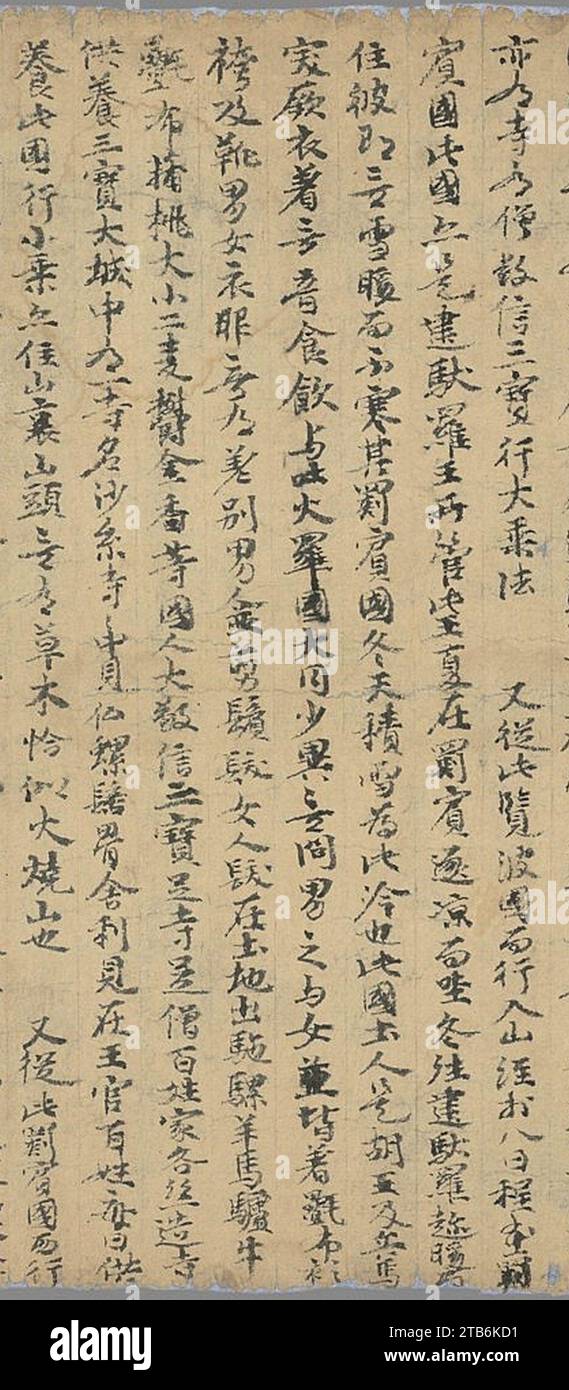 亦有寺有僧敬信三寶行大乘法 又從此覽波國而行入山經於八日程至罽
賓國此國亦是建馱羅王所管此王夏在罽賓逐凉而坐冬往建馱羅趂暖而
住彼即無雪暖而不寒其罽賓國冬天積雪為此冷也此國土人是胡王及兵馬
突厥衣着言音食飲与吐火羅國大同少異無問男之与女並皆着㲲布衫
袴及靴男女衣服無有差別男人並剪鬚髮女人髮在土地出駞騾羊馬驢牛
㲲布蒱桃大小二麦鬱金香等國人大敬信三寶足寺足僧百姓家各絲造寺
供養三寶大城中有一寺名沙糸寺寺中貝仏螺髻骨舍利見在王官百姓每日供
養此國行小乘亦住山裏山頭無有草木恰似火燒山也 又從此罽賓國西行
alamy
Image ID: 2TB6KD1
www.alamy.com